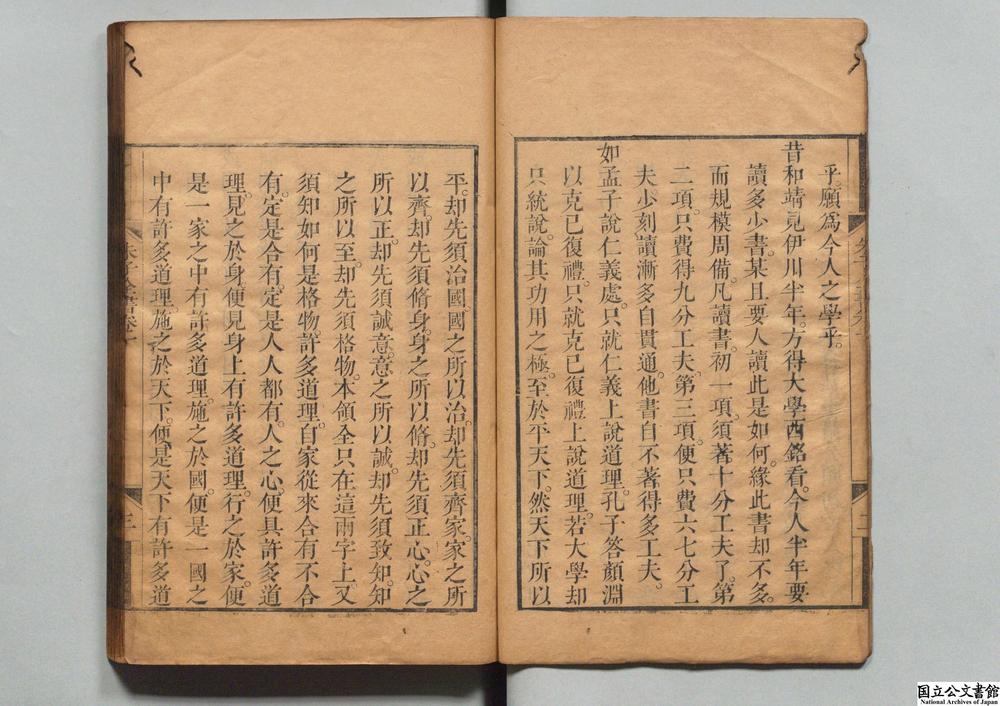 乎。願爲今人之學乎。
昔和靖見伊川半年。方得大學西銘看。今人半年要
讀多少書。某且要人讀此是如何。緣此書却不多。
而規模周備。凡讀書。初一項。須著十分工夫了。第
二項。只費得九分工夫。第三項。便只費六七分工
夫。少刻讀漸多。自貫通。他書自不著得多工夫。
如孟子說仁義處。只就仁義上說道理。孔子答顏淵
以克己復禮。只就克己復禮上說道理。若大學却
只統說。論其功用之極。至於平天下。然天下所以
平。却先須治國。國之所以治。却先須齊家。家之所
以齊。却先須脩身。身之所以脩。却先須正心。心之
所以正。却先須誠意。意之所以誠。却先須致知。知
之所以至。却先須格物。本領全只在這兩字上。又
須知如何是格物。許多道理。自家從來合有不合
有。定是合有。定是人人都有。人之心。便具許多道
理。見之於身。便見身上有許多道理。行之於家。便
是一家之中有許多道理。施之於國。便是一國之
中有許多道理。施之於天下。便是天下有許多道
三
国立公文書館
National Archives of Japan